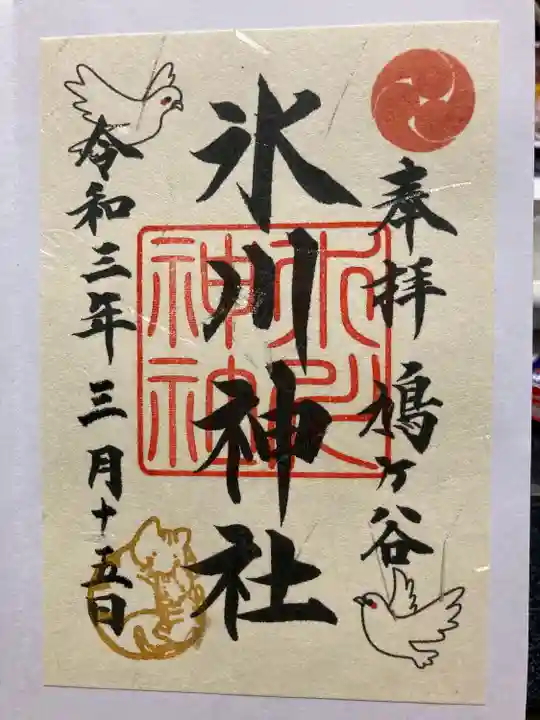 奉拝 鳩ヶ谷
氷川神社
氷川神社
令和三年 三月十五日